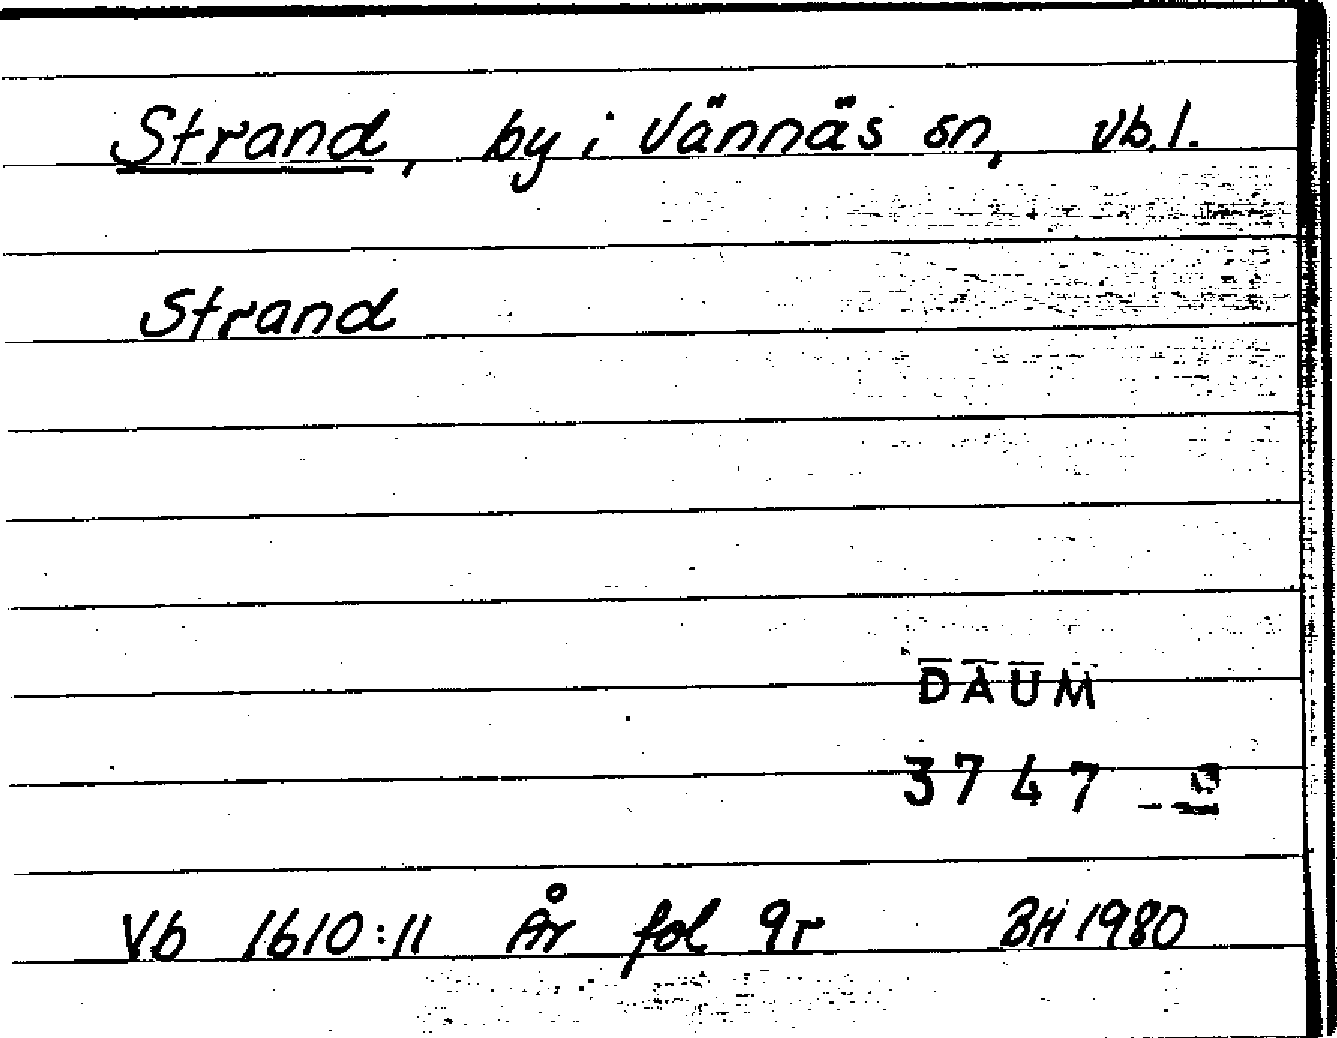 Strand, by i Vännäs sn, Vb.l.
Strand
DAUM
3747
Vb 1610:11 År fol 9r BH 1980